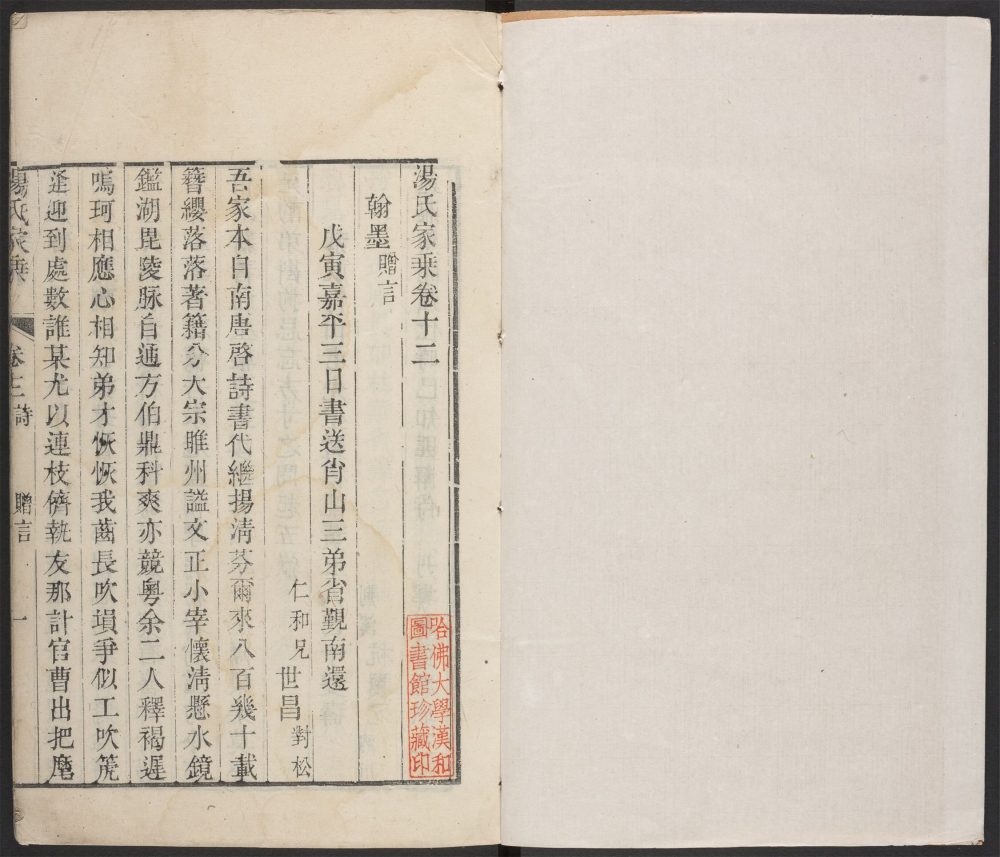 湯氏家乘卷十二
翰墨 贈言
戊寅嘉平三日書送肖山三弟省覲南還
仁和兄世昌對松
吾家本自南唐啓詩書代繼揚淸芬爾來八百幾十載
簪纓落落著籍分大宗睢州謚文正小宰懷淸懸水鏡
鑑湖毘陵脉自通方伯鼎科爽亦競粵余二人釋褐遲
鳴珂相應心相知弟才恢恢我齒長吹塤爭似工吹箎
逢迎到處數誰某尤以連枝儕執友那計官曹出把麾
湯氏家乘 卷十二 詩 贈言 一
哈佛大學漢和
圖書館珍藏印